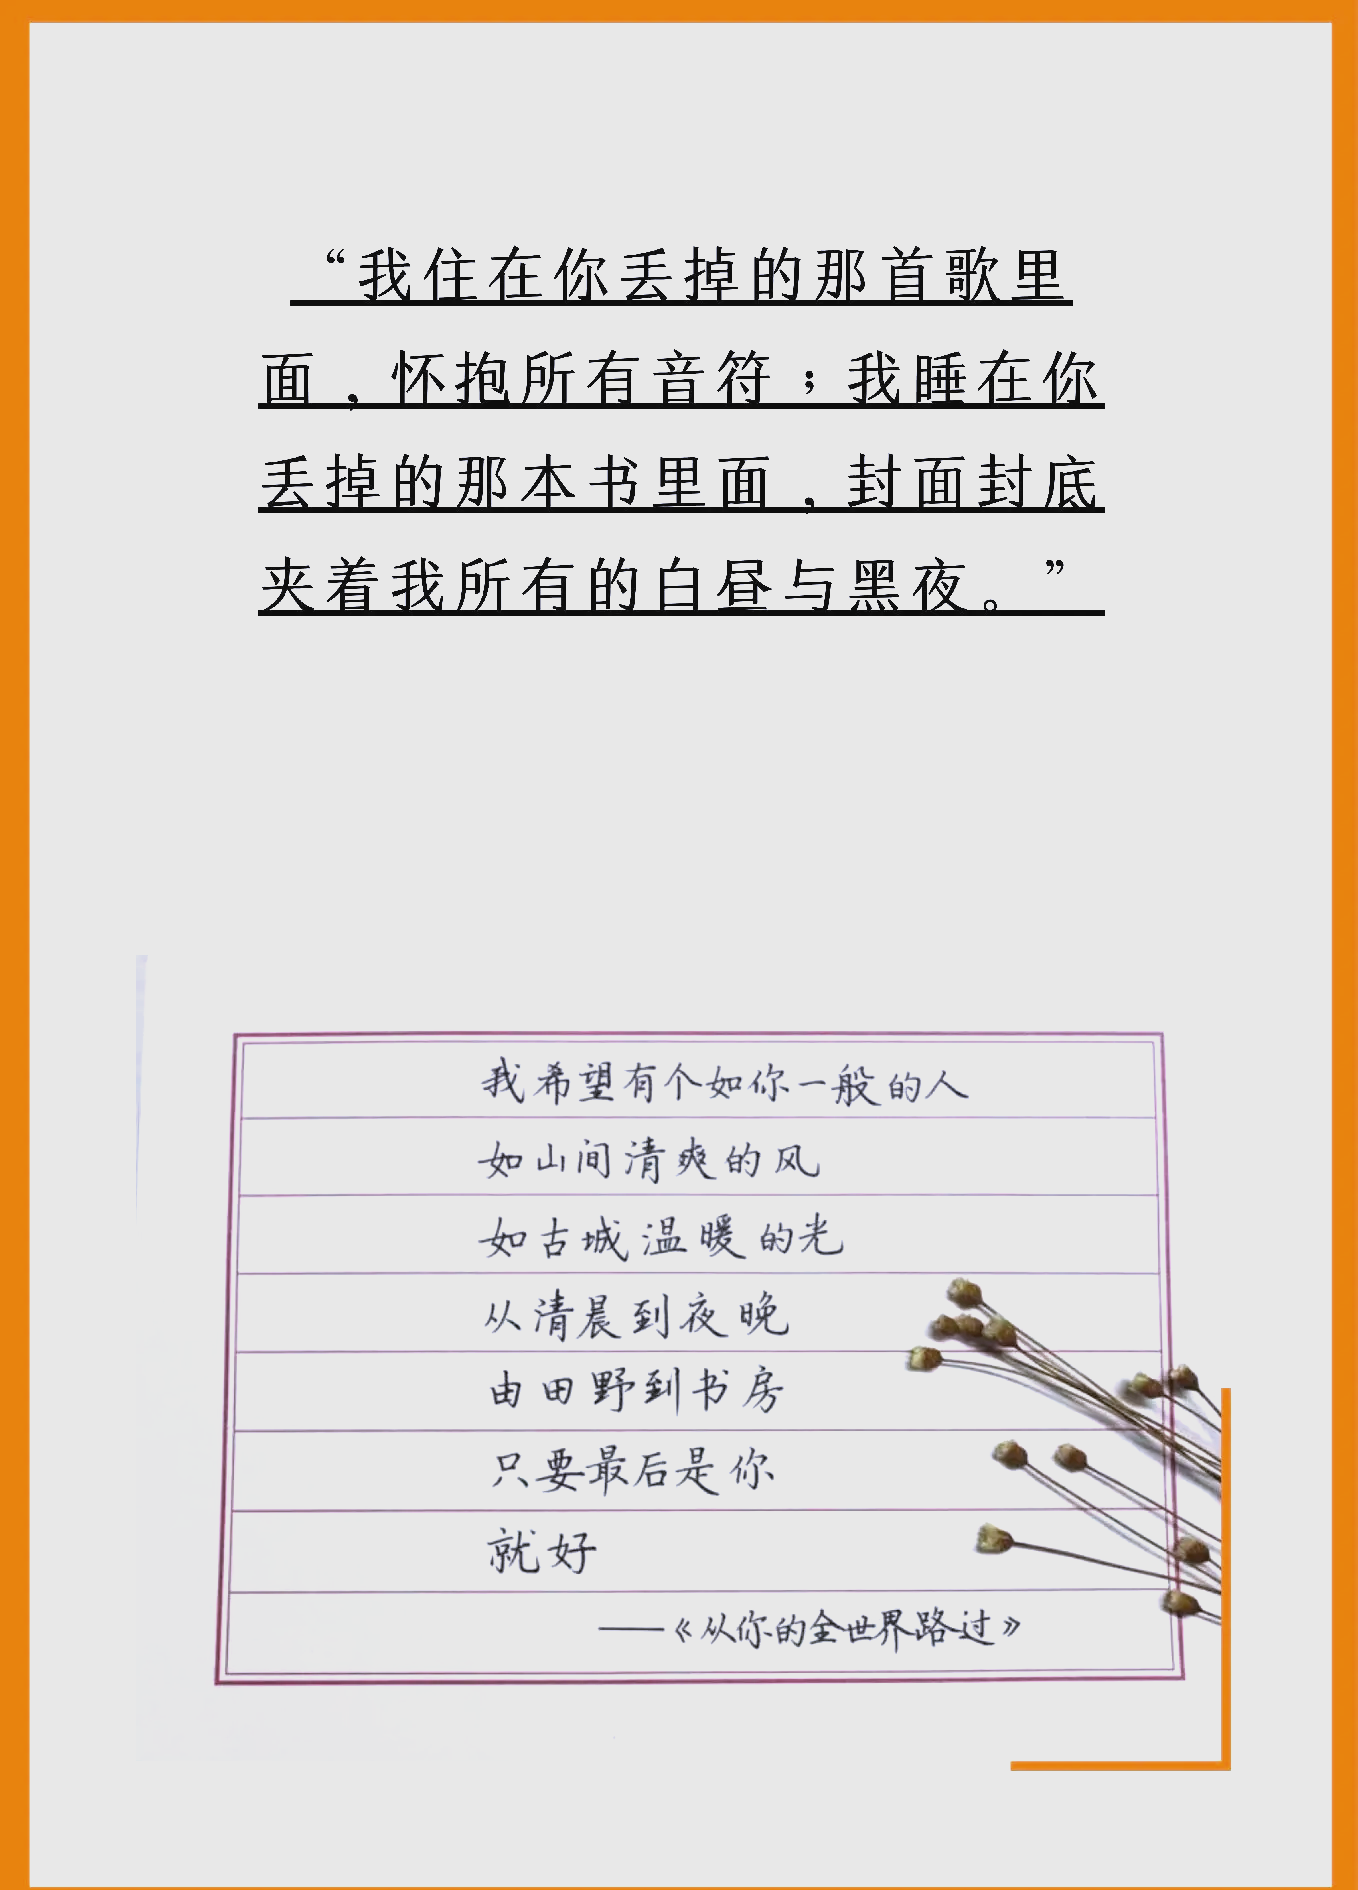 “我住在你丢掉的那首歌里
面，怀抱所有音符；我睡在你
丢掉的那本书里面，封面封底
夹着我所有的白昼与黑夜。”
我希望有个如你一般的人
如山间清爽的风
如古城温暖的光
从清晨到夜晚
由田野到书房
只要最后是你
就好
——《从你的全世界路过》